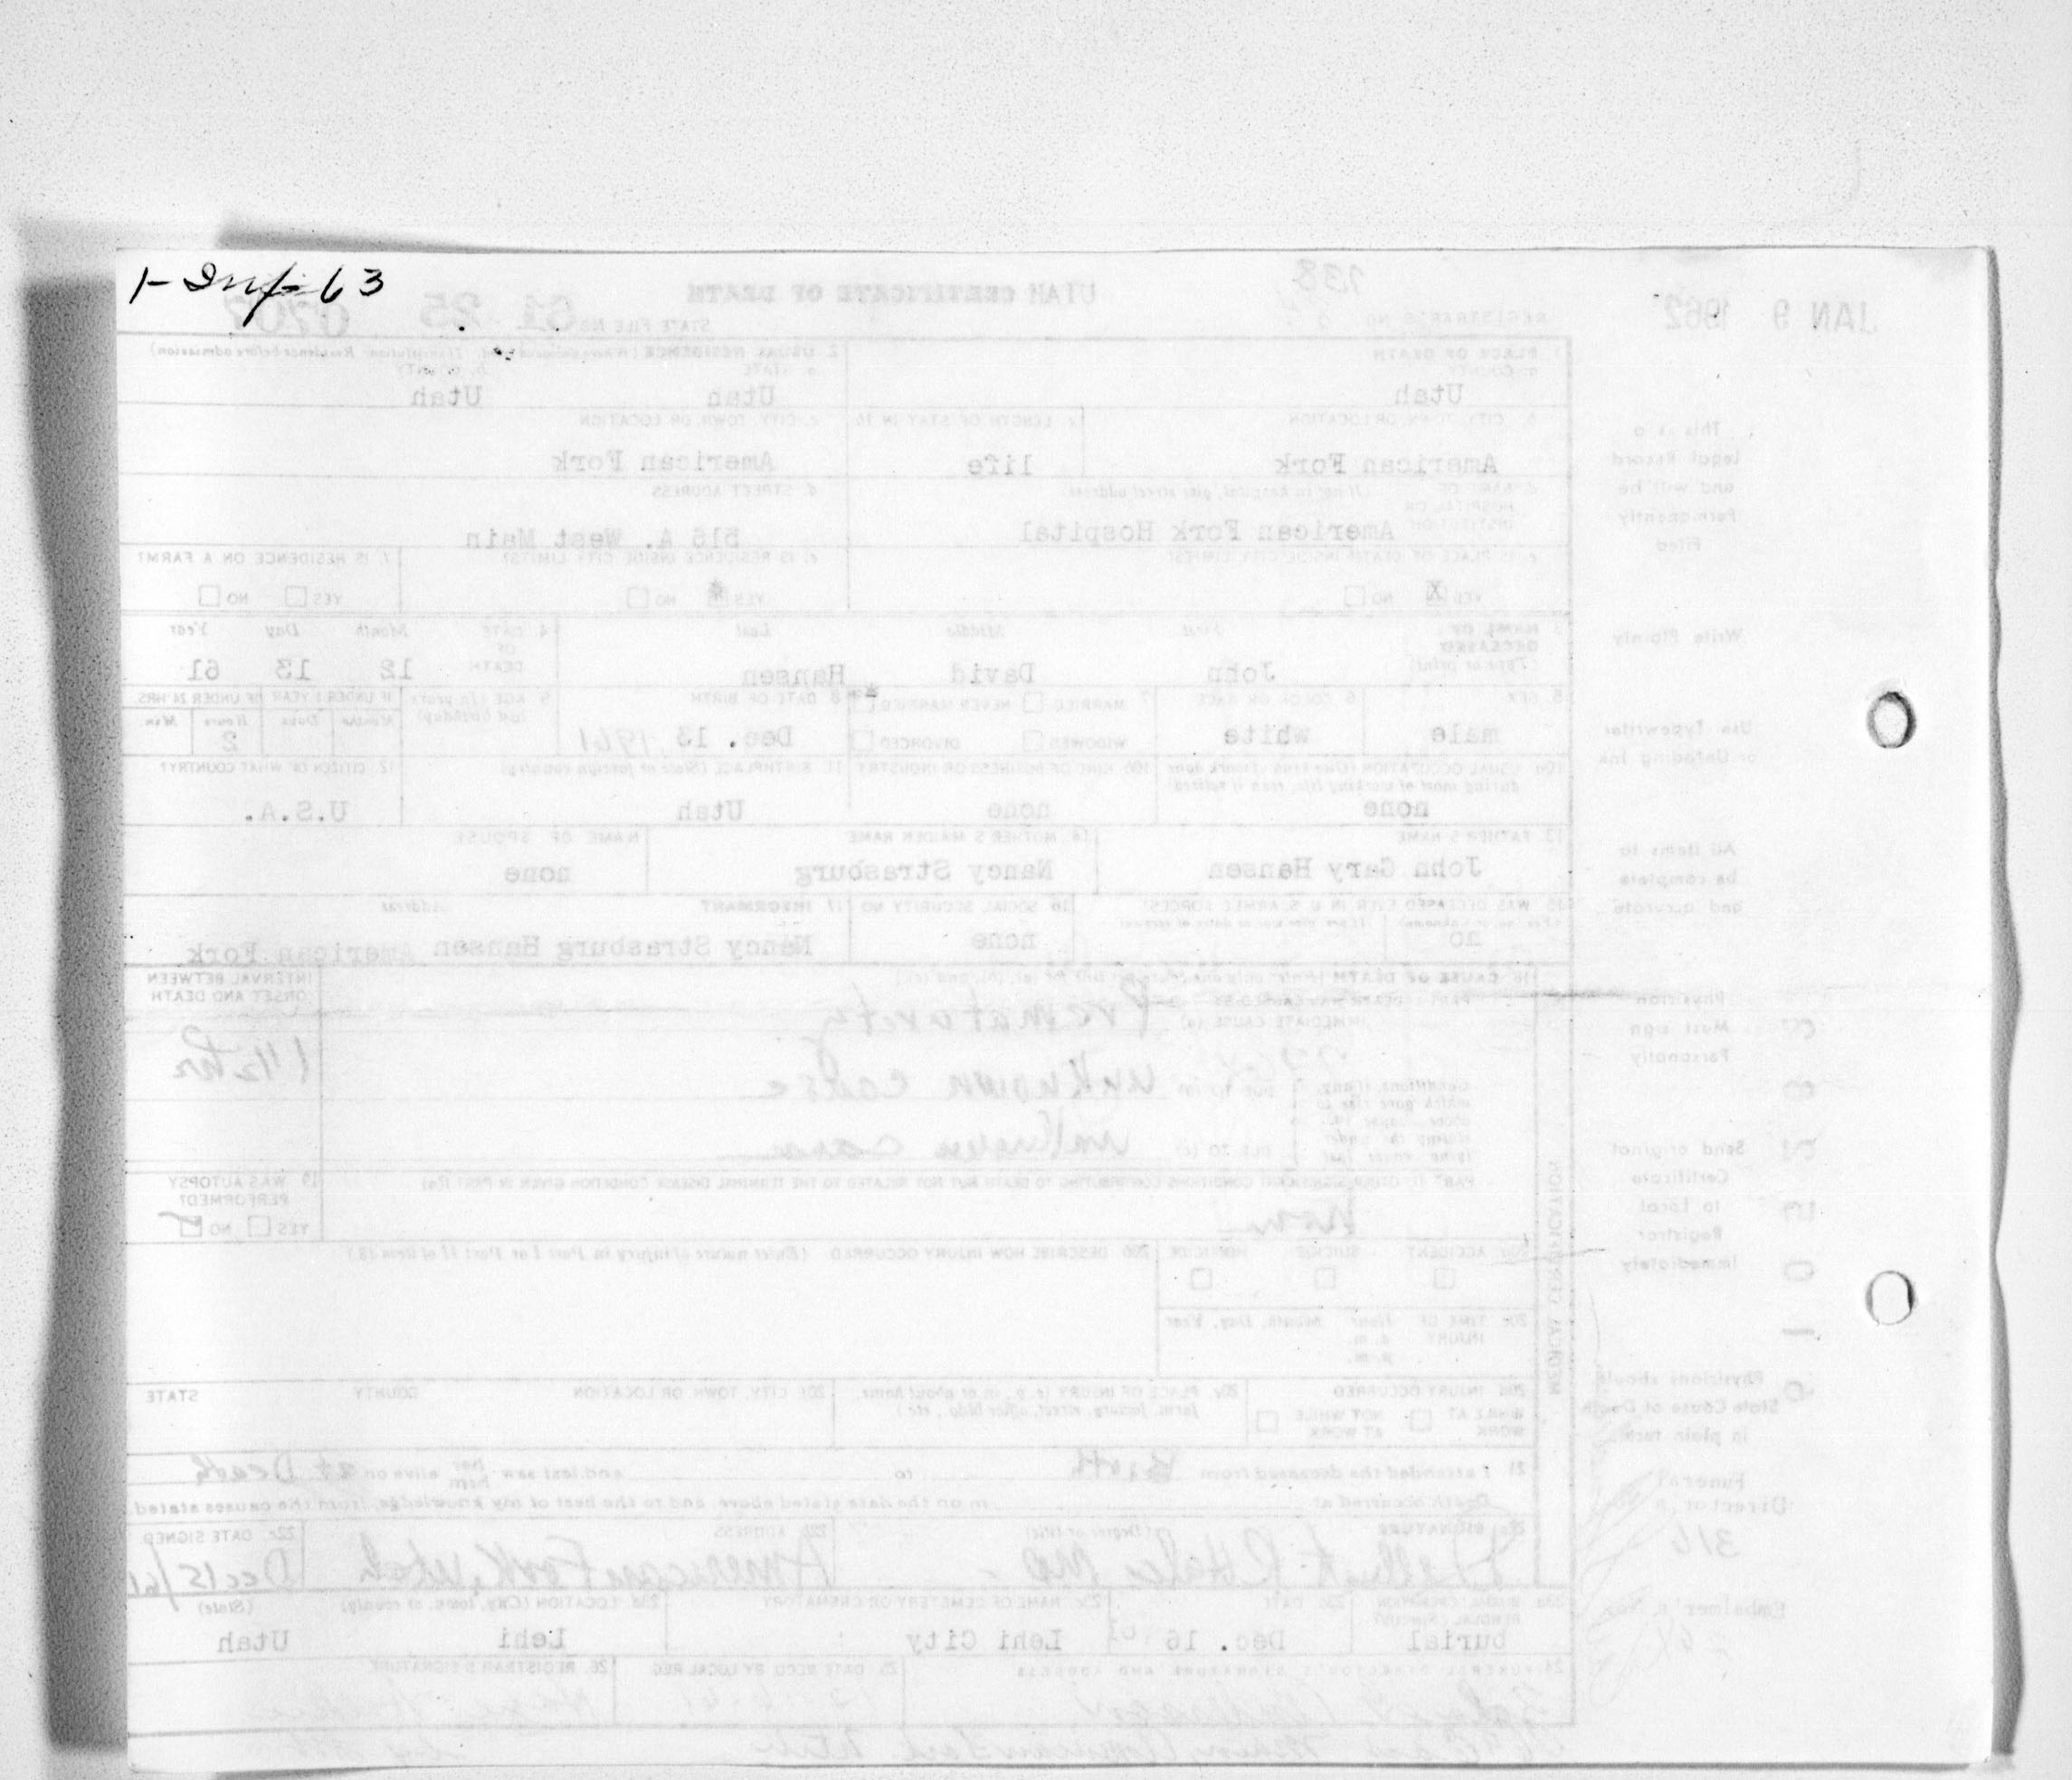 1-Inf-63
JAN 9 1962
238
UTAH CERTIFICATE OF DEATH
REGISTRAR'S NO.
STATE FILE NO. 61 25 0707
1. PLACE OF DEATH
a. COUNTY
Utah
2. USUAL RESIDENCE (Where deceased lived. If institution: Residence before admission)
a. STATE
Utah
b. COUNTY
Utah
b. CITY, TOWN, OR LOCATION
American Fork
c. LENGTH OF STAY IN 1b
life
c. CITY, TOWN, OR LOCATION
American Fork
d. NAME OF HOSPITAL OR INSTITUTION (If not in hospital, give street address)
American Fork Hospital
d. STREET ADDRESS
516 A. West Main
e. IS PLACE OF DEATH INSIDE CITY LIMITS?
YES X NO
e. IS RESIDENCE INSIDE CITY LIMITS?
YES * NO
f. IS RESIDENCE ON A FARM?
YES NO
3. NAME OF DECEASED (Type or print)
First Middle Last
John David Hansen
4. DATE OF DEATH
Month Day Year
12 13 61
5. SEX
male
6. COLOR OR RACE
white
7. MARRIED NEVER MARRIED *
WIDOWED DIVORCED
8. DATE OF BIRTH
Dec. 13, 1961
9. AGE (In years last birthday)
IF UNDER 1 YEAR
Months Days
IF UNDER 24 HRS
Hours Min.
2
10a. USUAL OCCUPATION (Give kind of work done during most of working life, even if retired)
none
10b. KIND OF BUSINESS OR INDUSTRY
none
11. BIRTHPLACE (State or foreign country)
Utah
12. CITIZEN OF WHAT COUNTRY?
U.S.A.
13. FATHER'S NAME
John Gary Hansen
14. MOTHER'S MAIDEN NAME
Nancy Strasburg
NAME OF SPOUSE
none
15. WAS DECEASED EVER IN U. S. ARMED FORCES?
(Yes, no, or unknown) (If yes, give war or dates of service)
no
16. SOCIAL SECURITY NO.
none
17. INFORMANT Address
Nancy Strasburg Hansen American Fork
18. CAUSE OF DEATH (Enter only one cause per line for (a), (b), and (c).)
PART I. DEATH WAS CAUSED BY:
IMMEDIATE CAUSE (a) Prematurity
Conditions, if any, which gave rise to above cause (a), stating the underlying cause last.
DUE TO (b) unknown cause
DUE TO (c) unknown cause
INTERVAL BETWEEN ONSET AND DEATH
1 1/2 hr
PART II. OTHER SIGNIFICANT CONDITIONS CONTRIBUTING TO DEATH BUT NOT RELATED TO THE TERMINAL DISEASE CONDITION GIVEN IN PART I(a)
None
19. WAS AUTOPSY PERFORMED?
YES NO
20a. ACCIDENT SUICIDE HOMICIDE
20b. DESCRIBE HOW INJURY OCCURRED. (Enter nature of injury in Part I or Part II of item 18.)
20c. TIME OF INJURY
Hour Month, Day, Year
a.m.
p.m.
20d. INJURY OCCURRED
WHILE AT WORK NOT WHILE AT WORK
20e. PLACE OF INJURY (e.g., in or about home, farm, factory, street, office bldg., etc.)
20f. CITY, TOWN, OR LOCATION COUNTY STATE
21. I attended the deceased from Birth to and last saw her him alive on at Death
Death occurred at m on the date stated above, and to the best of my knowledge, from the causes stated.
22a. SIGNATURE (Degree or title)
22b. ADDRESS
American Fork, Utah
22c. DATE SIGNED
Dec 15/61
23a. BURIAL, CREMATION, REMOVAL (Specify)
burial
23b. DATE
Dec. 16 61
23c. NAME OF CEMETERY OR CREMATORY
Lehi City
23d. LOCATION (City, town, or county) (State)
Lehi Utah
24. FUNERAL DIRECTOR'S SIGNATURE AND ADDRESS
25. DATE RECD BY LOCAL REG.
26. REGISTRAR'S SIGNATURE
MEDICAL CERTIFICATION
This is a Legal Record and will be Permanently Filed
Write Plainly
Use Typewriter or Unfading Ink
All items to be complete and accurate
Physician Must sign Personally
Send original Certificate to Local Registrar Immediately
Physicians should State Cause of Death in plain terms
Funeral Director's No.
316
Embalmer's No.